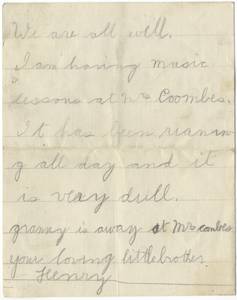 We are all well.
I am having music
lessons at Mrs Coombes.
It has been rianin
g all day and it
is very dull.
granny is away at Mrs combes
your loving little brother
Henry